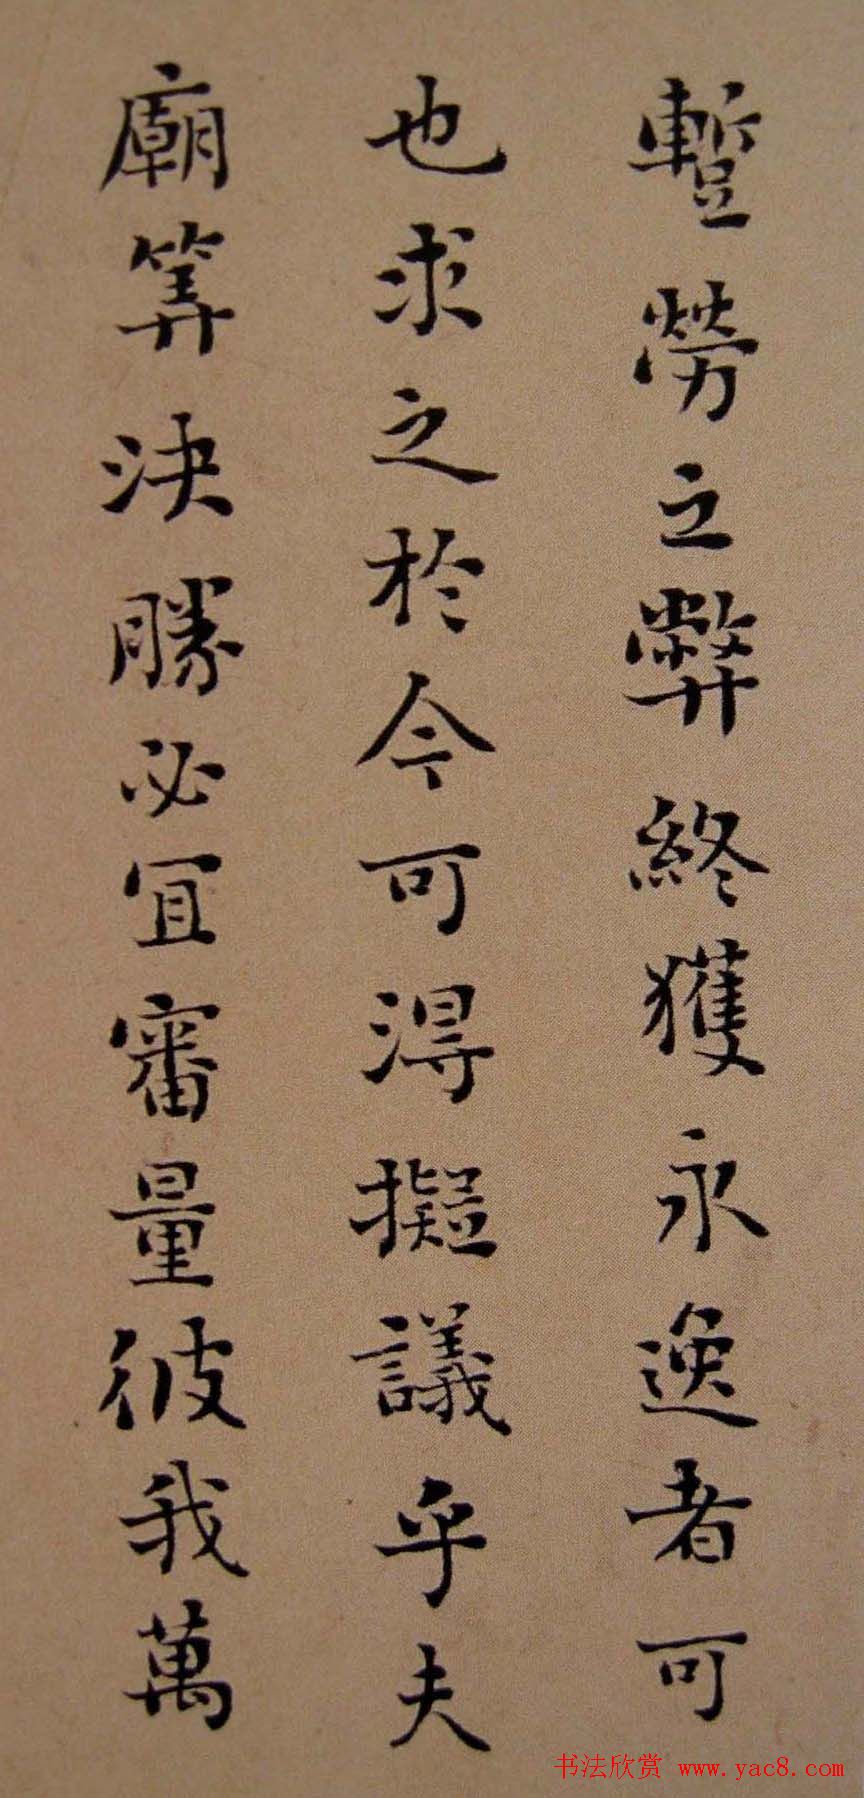 蹔勞之弊終獲永逸者可
也求之於今可得擬議乎夫
廟筭決勝必宜審量彼我萬
书法欣赏 www.yac8.com